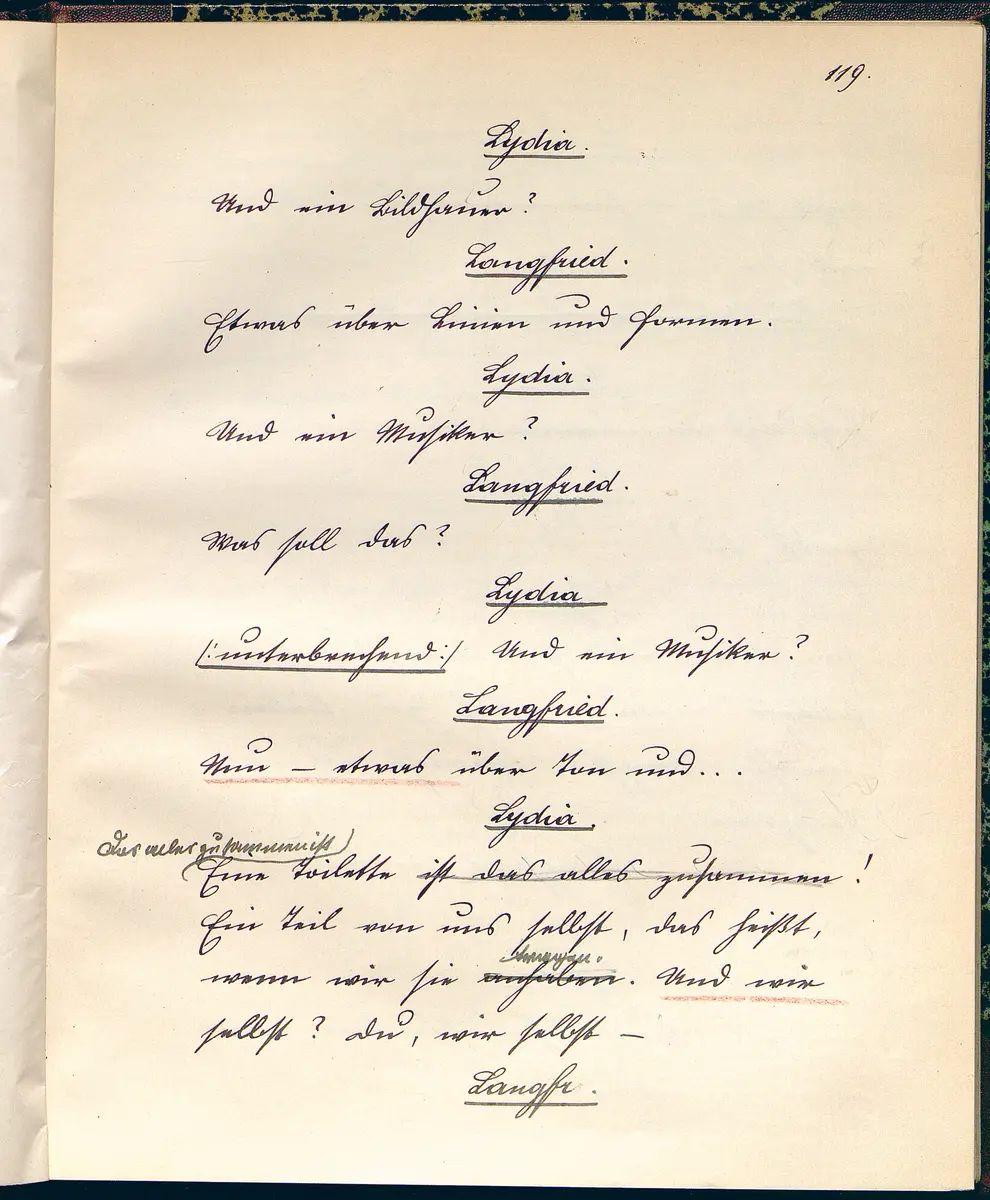 119.
Lydia.
Und ein Bildhauer?
Langfried.
Etwas über Linien und Formen.
Lydia.
Und ein Musiker?
Langfried.
Was soll das?
Lydia
/:unterbrechend:/ Und ein Musiker?
Langfried.
Nun – etwas über Ton und...
Lydia.
Das alles zusammen ist
Eine Toilette ist das alles zusammen!
Ein Teil von uns selbst, das heißt,
wenn wir sie anhaben. Und wir
selbst? Du, wir selbst –
Langfr.